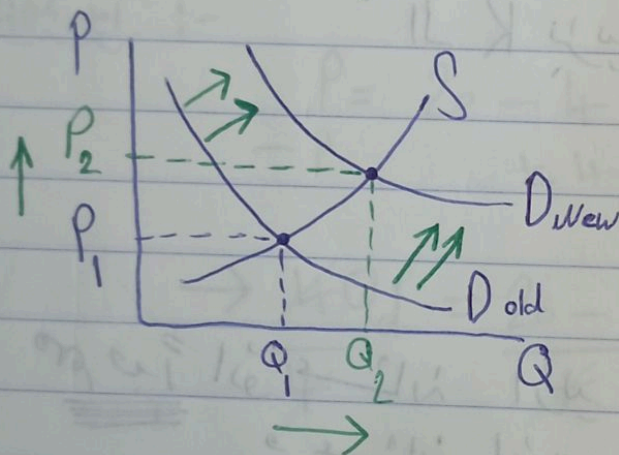 P
S
P₂
D New
P₁
D old
Q₁
Q₂
Q